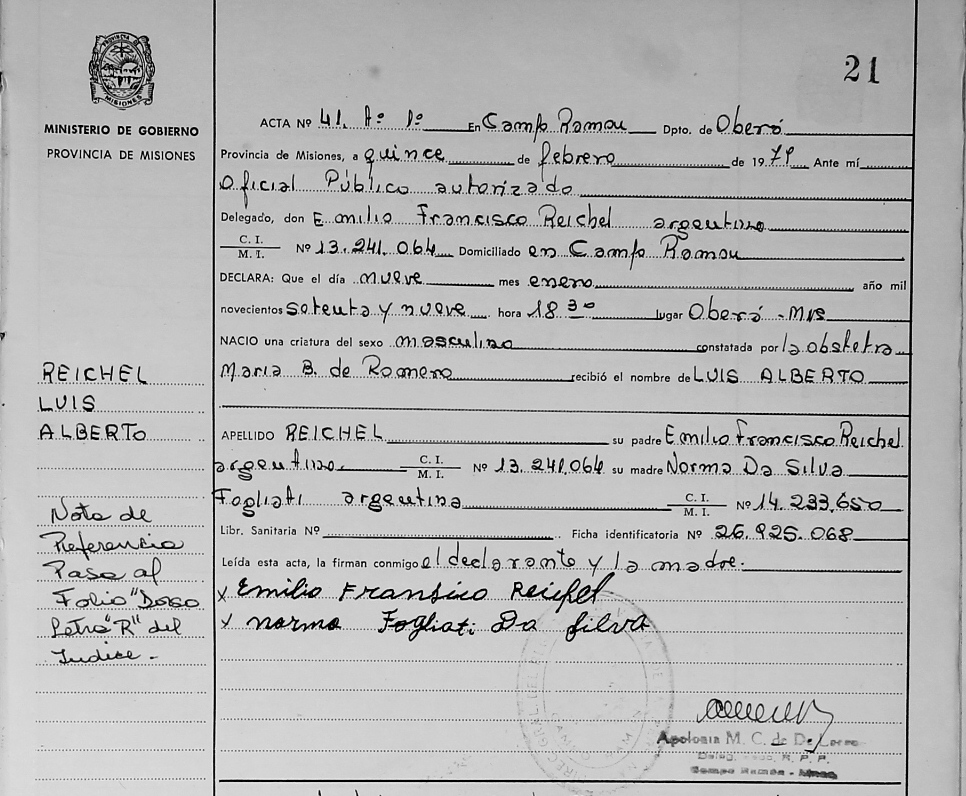 21
PROVINCIA DE
MISIONES
MINISTERIO DE GOBIERNO
PROVINCIA DE MISIONES
ACTA Nº 41. Aº 1º En Campo Ramou Dpto. de Oberá
Provincia de Misiones, a quince de febrero de 1979 Ante mí
Oficial Público autorizado
Delegado, don Emilio Francisco Reichel argentino
C. I.
M. I. Nº 13.241.064 Domiciliado en Campo Ramou
DECLARA: Que el día nueve mes enero año mil
novecientos setenta y nueve hora 18 30 lugar Oberá - Mns
NACIO una criatura del sexo masculino constatada por la obstetra
Maria B. de Romero recibió el nombre de LUIS ALBERTO
REICHEL
LUIS
ALBERTO
APELLIDO REICHEL su padre Emilio Francisco Reichel
argentino C. I.
M. I. Nº 13.241.064 su madre Norma Da Silva
Fogliati argentina C. I.
M. I. Nº 14.233.650
Libr. Sanitaria Nº Ficha identificatoria Nº 26.925.068
Leída esta acta, la firman conmigo el declarante y la madre.
Nota de
Referencia
Pasa al
Folio "Dorso
Letra "R" del
Indice -
x Emilio Fransisco Reichel
x norma Fogliati Da Silva
Apolonia M. C. de De
Deleg. R. P. P.
Campo Ramón - Mnes.